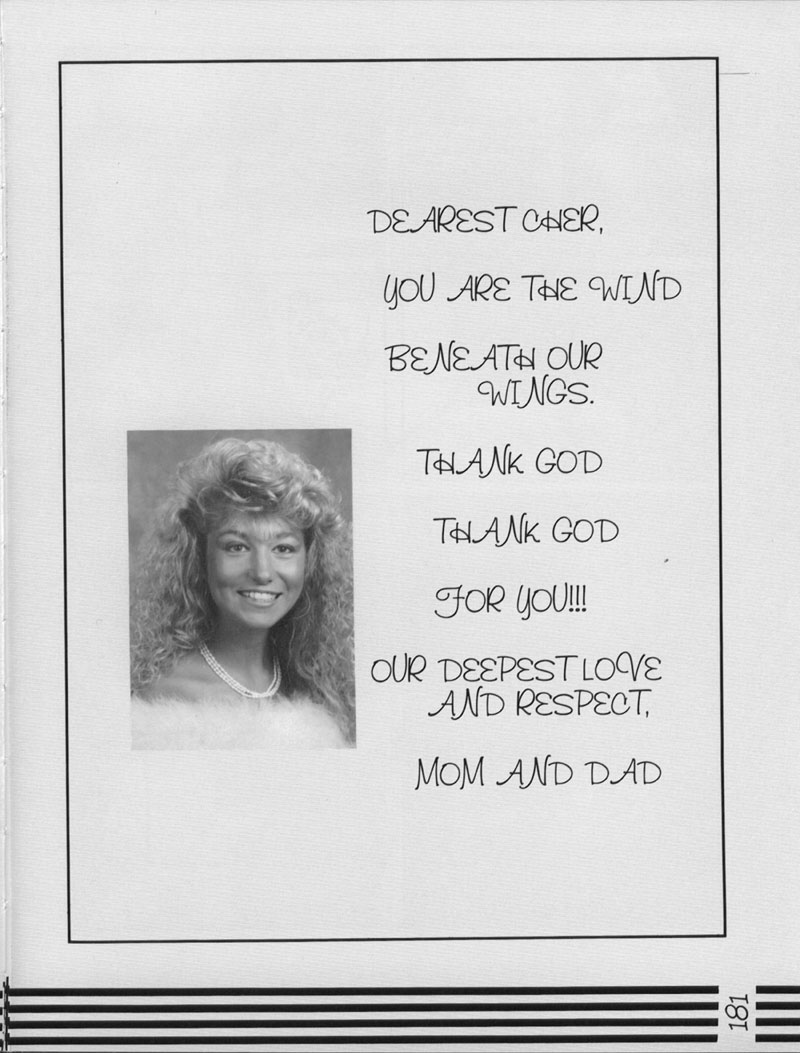 DEAREST CHER,
YOU ARE THE WIND
BENEATH OUR
WINGS.
THANK GOD
THANK GOD
FOR YOU!!!
OUR DEEPEST LOVE
AND RESPECT,
MOM AND DAD
181